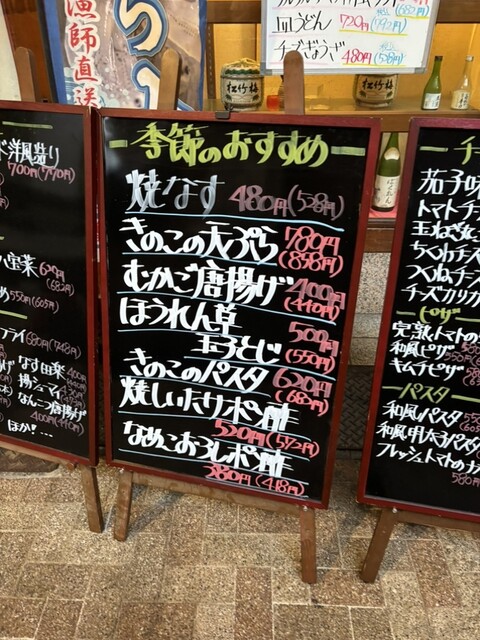 漁師直送
(682円)
皿うどん
720円
(792円)
チーズぎょうざ
480円
(528)
松竹梅
松竹梅
洋風造り
700円(770円)
八宝菜 620円
(682)
552円(605円)
フライ 680円(748円)
なす田楽
揚シューマイ
なんこつ唐揚げ
400円(440円)
ほか!…
季節のおすすめ
焼なす 480円(528円)
きのこの天ぷら 780円
(858円)
むかご唐揚げ 400円
(440円)
ほうれん草
玉子とじ
500円
(550円)
きのこのパスタ 620円
(682円)
焼しいたけポン酢
520円(572円)
なめこおろしポン酢
380円(418円)
茄子味
トマトチ
玉ねぎ丸
ちくわチ
つくねチーズ
チーズカリカ
ピザ
完熟トマトの
和風ピザ
キムチピザ
パスタ
和風パスタ
和風明太子パスタ
フレッシュトマトのナ
580円